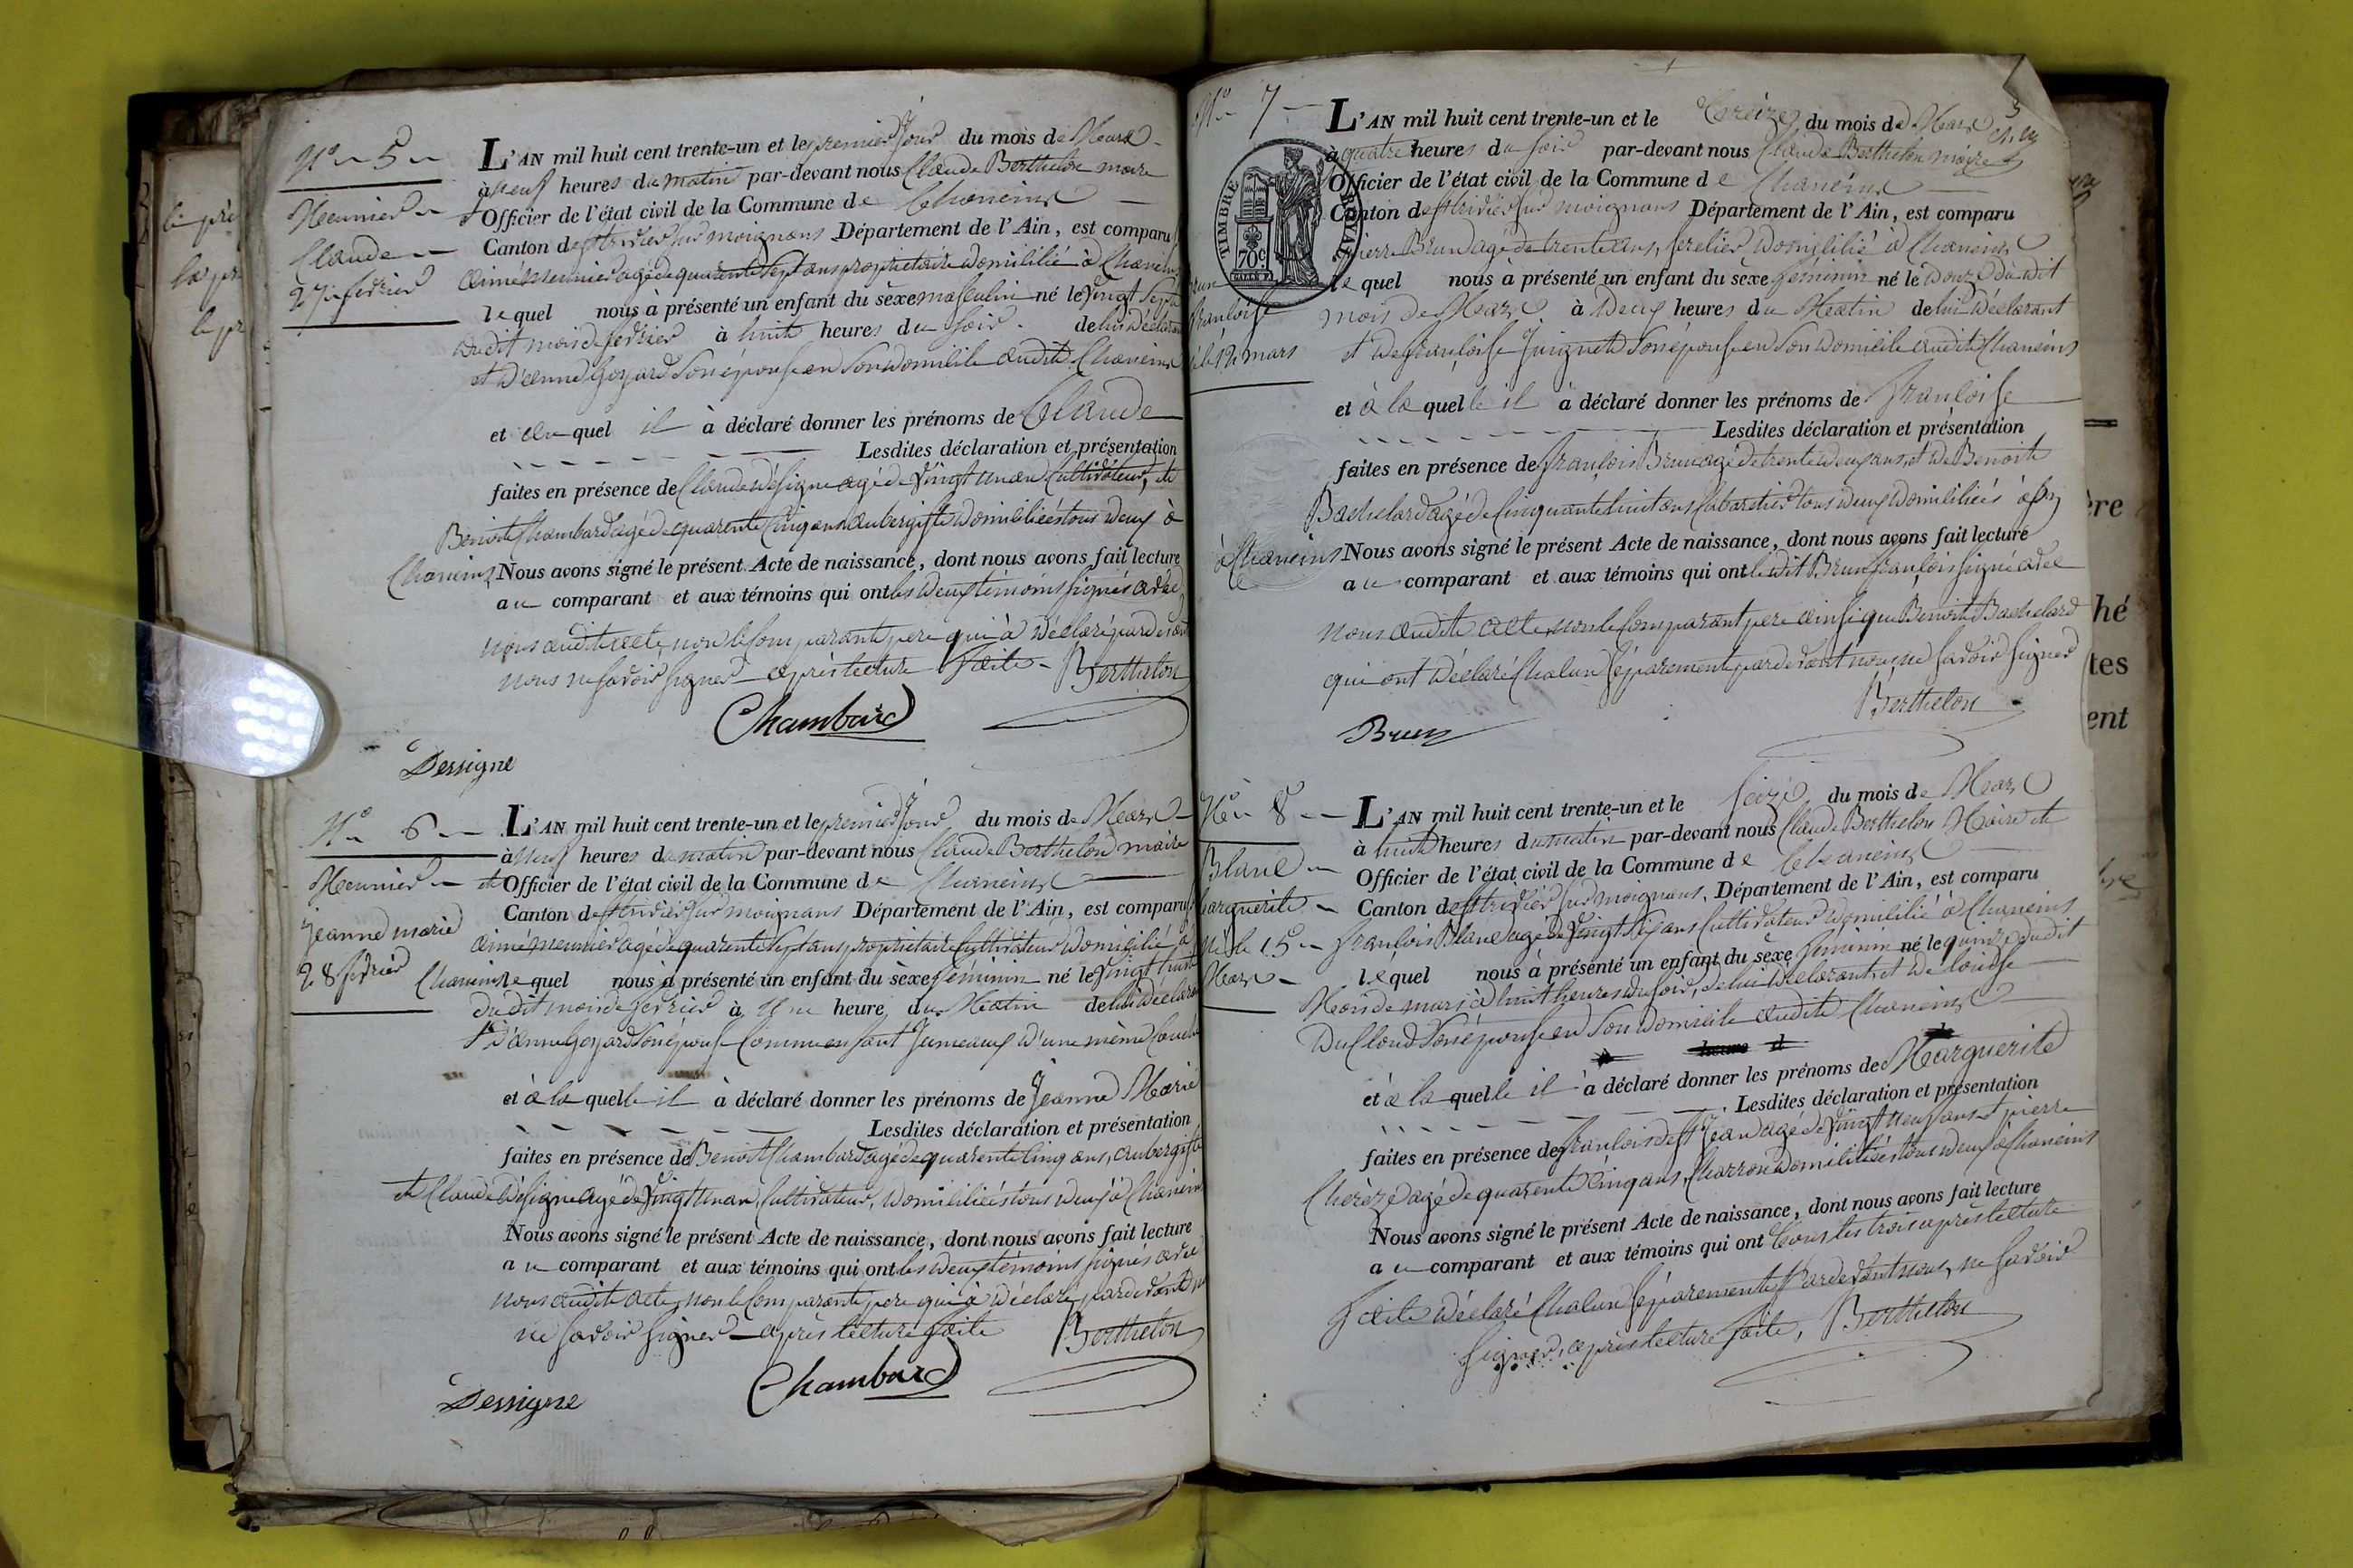 N° 5
Meunier
Claude
27 fevrier
L'AN mil huit cent trente-un et le premier jour du mois de Mars
à neuf heures du matin par-devant nous Claude Berthelon maire
et Officier de l'état civil de la Commune de Chaneins
Canton de st trivier sur moignans Département de l'Ain, est comparu
aimé meunier agé de quarente sept ans proprietaire domicilié à Chaneins
lequel nous à présenté un enfant du sèxe masculin né le vingt sept
dudit mois de fevrier à huit heures du soir. de lui déclarant
et d'anne Goyard son épouse en son domicile audit Chaneins
et au quel il à déclaré donner les prénoms de Claude
Lesdites déclaration et présentation
faites en présence de Claude désigne agé de vingt un an Cultivateur, et
Benoit Chambard agé de quarente cinq ans aubergiste domiciliés tous deux à
Chaneins Nous avons signé le présent Acte de naissance, dont nous avons fait lecture
au comparant et aux témoins qui ont les deux témoins signés avec
nous audit acte, non le Comparant pere qui à déclaré pardevant
nous ne savoir signer après lecture faite - Berthelon
Chambard
Dessigne
N° 6
Meunier
jeanne marie
28 fevrier
L'AN mil huit cent trente-un et le premier jour du mois de Mars
à neuf heures du matin par-devant nous Claude Berthelon maire
et Officier de l'état civil de la Commune de Chaneins
Canton de st trivier sur moignans Département de l'Ain, est comparu
aimé meunier agé de quarente sept ans proprietaire Cultivateur domicilié à
Chaneins lequel nous à présenté un enfant du sèxe féminin né le vingt huit
dudit mois de fevrier à Une heure du Matin de lui déclarant
et d'anne Goyard son épouse Comme enfant Jumeaux d'une même Couche
et à la quelle il à déclaré donner les prénoms de Jeanne Marie
Lesdites déclaration et présentation
faites en présence de Benoit Chambard agé de quarente cinq ans, aubergiste
et Claude désigne agé de vingt un an, Cultivateur, domiciliés tous deux à Chaneins
Nous avons signé le présent Acte de naissance, dont nous avons fait lecture
au comparant et aux témoins qui ont les deux témoins signés avec
nous audit acte, non le Comparant pere qui à déclaré pardevant
ne savoir signer - après lecture faite Berthelon
Chambard
Dessigne
N° 7
françoise
le 12 mars
TIMBRE ROYAL
70c
L'AN mil huit cent trente-un et le treize du mois de Mars
à quatre heures du soir par-devant nous Claude Berthelon maire et
Officier de l'état civil de la Commune de Chaneins
Canton de st trivier sur moignans Département de l'Ain, est comparu
pierre Brun agé de trente ans, domicilié à Chaneins
le quel nous a présenté un enfant du sexe féminin né le douze dudit
mois de Mars à deux heures du Matin de lui déclarant
et de françoise Juignet son épouse en son domicile audit Chaneins
et à la quelle il à déclaré donner les prénoms de françoise
Lesdites déclaration et présentation
faites en présence de françois Brun agé de trente deux ans, et de Benoit
Bachelard agé de Cinquante huit ans Cabaretier tous deux domiciliés
à Chaneins Nous avons signé le présent Acte de naissance, dont nous avons fait lecture
au comparant et aux témoins qui ont ledit Brun françois signé avec
nous audit acte, non le Comparant pere ainsi que Benoit Bachelard
qui ont déclaré Chacun séparement pardevant nous, ne savoir signer
Berthelon
Brun
N° 8
Blanc
Marguerite
Né le 15
Mars
L'AN mil huit cent trente-un et le seize du mois de Mars
à huit heures du matin par-devant nous Claude Berthelon Maire et
Officier de l'état civil de la Commune de Chaneins
Canton de st trivier sur moignans. Département de l'Ain, est comparu
françois Blanc agé de vingt six ans Cultivateur domicilié à Chaneins
lequel nous à présenté un enfant du sèxe féminin né le quinze dudit
Mois de mars à huit heures du soir, de lui déclarant, et de louise
Ducloud son épouse en son domicile audit Chaneins
et à la quelle il à déclaré donner les prénoms de Marguerite
Lesdites déclaration et présentation
faites en présence de françois de st Jean agé de vingt neuf ans et pierre
Cherèze agé de quarente cinq ans, Charron domiciliés tous deux à Chaneins
Nous avons signé le présent Acte de naissance, dont nous avons fait lecture
au comparant et aux témoins qui ont tous les trois après lecture
faite déclaré Chacun séparement pardevant nous, ne savoir
signer, après lecture faite, Berthelon